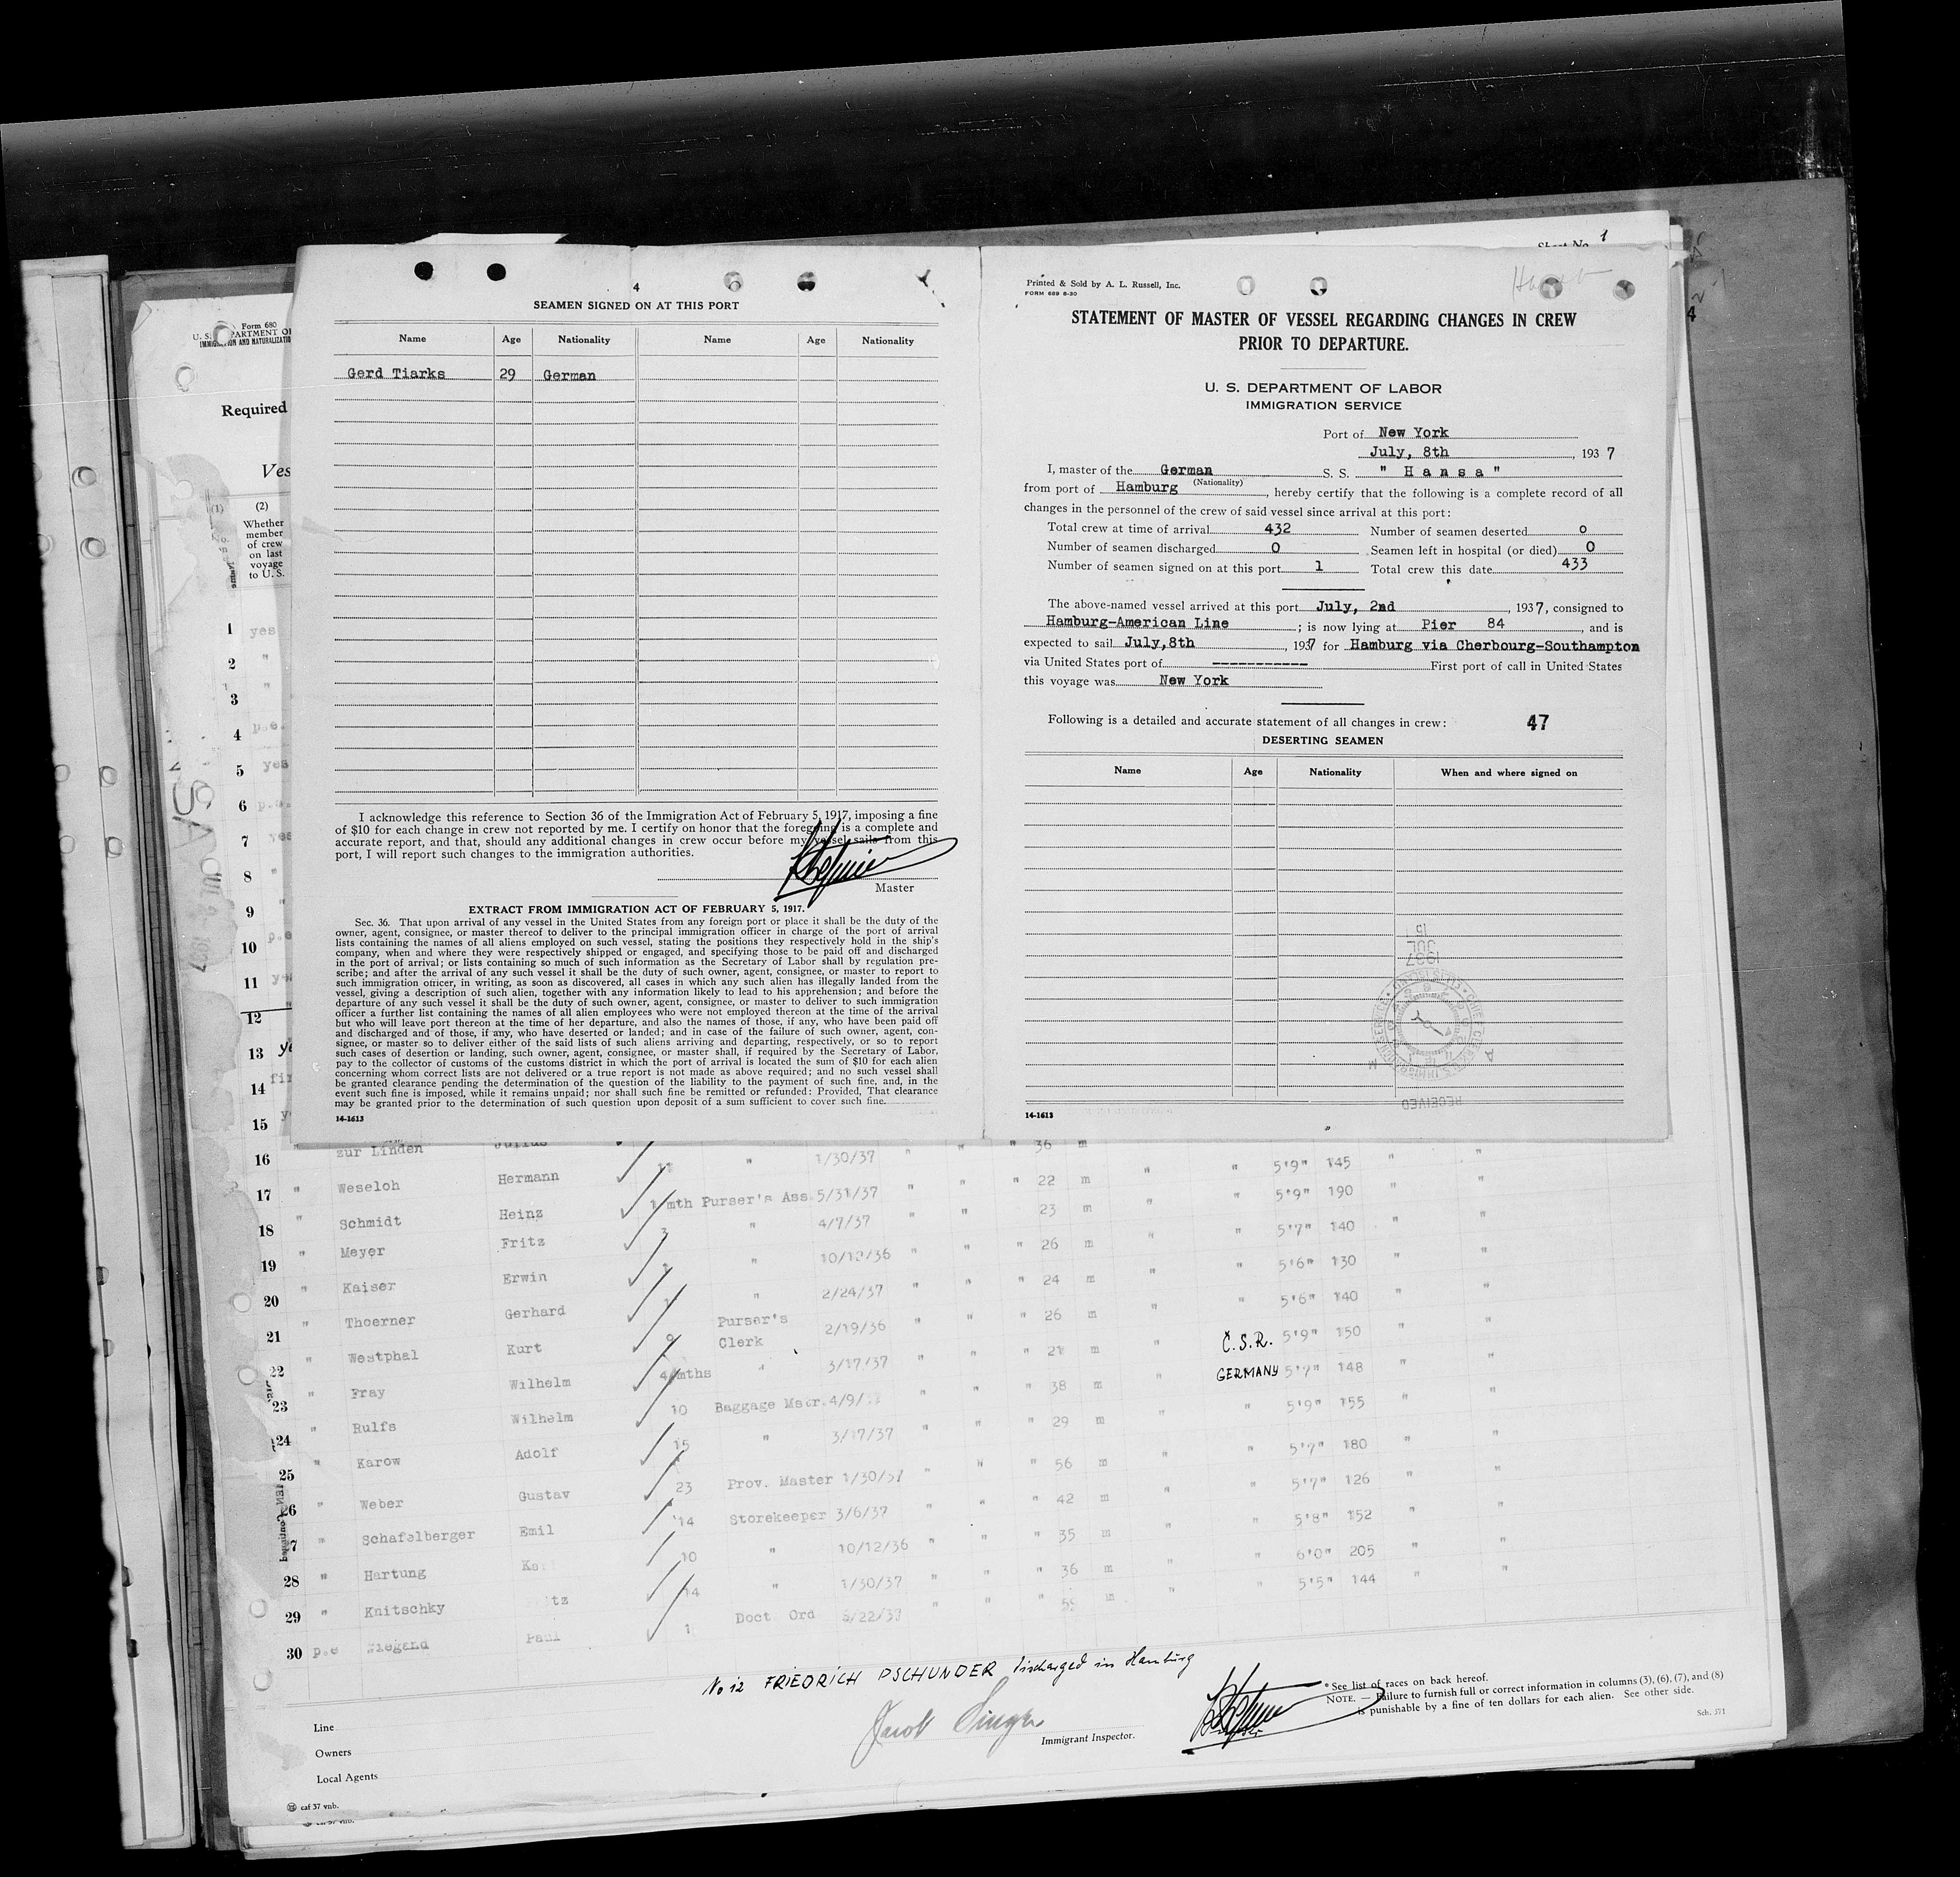 Sheet No. 1
4
SEAMEN SIGNED ON AT THIS PORT
Name Age Nationality Name Age Nationality
Gerd Tiarks 29 German
I acknowledge this reference to Section 36 of the Immigration Act of February 5, 1917, imposing a fine
of $10 for each change in crew not reported by me. I certify on honor that the foregoing is a complete and
accurate report, and that, should any additional changes in crew occur before my vessel sails from this
port, I will report such changes to the immigration authorities.
Master
EXTRACT FROM IMMIGRATION ACT OF FEBRUARY 5, 1917.
Sec. 36. That upon arrival of any vessel in the United States from any foreign port or place it shall be the duty of the
owner, agent, consignee, or master thereof to deliver to the principal immigration officer in charge of the port of arrival
lists containing the names of all aliens employed on such vessel, stating the positions they respectively hold in the ship's
company, when and where they were respectively shipped or engaged, and specifying those to be paid off and discharged
in the port of arrival; or lists containing so much of such information as the Secretary of Labor shall by regulation pre-
scribe; and after the arrival of any such vessel it shall be the duty of such owner, agent, consignee, or master to report to
such immigration officer, in writing, as soon as discovered, all cases in which any such alien has illegally landed from the
vessel, giving a description of such alien, together with any information likely to lead to his apprehension; and before the
departure of any such vessel it shall be the duty of such owner, agent, consignee, or master to deliver to such immigration
officer a further list containing the names of all alien employees who were not employed thereon at the time of the arrival
but who will leave port thereon at the time of her departure, and also the names of those, if any, who have been paid off
and discharged and of those, if any, who have deserted or landed; and in case of the failure of such owner, agent, con-
signee, or master so to deliver either of the said lists of such aliens arriving and departing, respectively, or so to report
such cases of desertion or landing, such owner, agent, consignee, or master shall, if required by the Secretary of Labor,
pay to the collector of customs of the customs district in which the port of arrival is located the sum of $10 for each alien
concerning whom correct lists are not delivered or a true report is not made as above required; and no such vessel shall
be granted clearance pending the determination of the question of the liability to the payment of such fine, and, in the
event such fine is imposed, while it remains unpaid; nor shall such fine be remitted or refunded: Provided, That clearance
may be granted prior to the determination of such question upon deposit of a sum sufficient to cover such fine.
14-1613
Printed & Sold by A. L. Russell, Inc.
FORM 689 8-30
STATEMENT OF MASTER OF VESSEL REGARDING CHANGES IN CREW
PRIOR TO DEPARTURE.
U. S. DEPARTMENT OF LABOR
IMMIGRATION SERVICE
Port of New York
July, 8th, 1937
I, master of the German S. S. " H a n s a "
(Nationality)
from port of Hamburg, hereby certify that the following is a complete record of all
changes in the personnel of the crew of said vessel since arrival at this port:
Total crew at time of arrival 432 Number of seamen deserted 0
Number of seamen discharged 0 Seamen left in hospital (or died) 0
Number of seamen signed on at this port 1 Total crew this date 433
The above-named vessel arrived at this port July, 2nd, 1937, consigned to
Hamburg-American Line; is now lying at Pier 84, and is
expected to sail July,8th, 1937 for Hamburg via Cherbourg-Southampton
via United States port of ----------- First port of call in United States
this voyage was New York
Following is a detailed and accurate statement of all changes in crew: 47
DESERTING SEAMEN
Name Age Nationality When and where signed on
1937
JUL
15
RECEIVED
14-1613
Form 680
U. S. DEPARTMENT OF
IMMIGRATION AND NATURALIZATIO
Required
Ves
(1) (2)
Whether
member
of crew
on last
voyage
to U. S.
1 yes
2 "
3 "
4 p.e.
5 yes
6 p.e.
7 yes
8 "
9 "
10 p.e
11 ye
12 "
13 ye
14 fir
15 y
16 " zur Linden Julius " 1/30/37 " " " 36 m " " 5'9" 145 " "
17 " Weseloh Hermann 1 mth Purser's Ass. 5/31/37 " " " 22 m " " 5'9" 190 " "
18 " Schmidt Heinz 3 " 4/7/37 " " 23 m " " 5'7" 140 " "
19 " Meyer Fritz " 10/12/36 " " " 26 m " " 5'6" 130 " "
20 " Kaiser Erwin " 2/24/37 " " " 24 m " " 5'6" 140 " "
21 " Thoerner Gerhard Purser's Clerk 2/19/36 " " " 26 m " Č.S.R. 5'9" 150 " "
22 " Westphal Kurt 4 mths " 3/17/37 " " " 21 m " GERMANY 5'7" 148 " "
23 " Fray Wilhelm 10 Baggage Mstr. 4/9/ " " " 38 m " " 5'9" 155 " "
24 " Rulfs Wilhelm 15 " 3/17/37 " " " 29 m " " 5'7" 180 " "
25 " Karow Adolf 23 Prov. Master 1/30/37 " " " 56 m " " 5'7" 126 " "
26 " Weber Gustav 14 Storekeeper 3/6/37 " " " 42 m " " 5'8" 152 " "
27 " Schafelberger Emil 10 " 10/12/36 " " " 35 m " " 6'0" 205 " "
28 " Hartung 14 " 1/30/37 " " " 36 m " " 5'5" 144 " "
29 " Knitschky 1 Doct Ord 5/22/37 " " " m "
30 p.e Wiegand Paul
No 12 FRIEDRICH PSCHUNDER discharged in Hamburg
Line
Owners
Local Agents
Immigrant Inspector.
* See list of races on back hereof.
NOTE. — Failure to furnish full or correct information in columns (3), (6), (7), and (8)
is punishable by a fine of ten dollars for each alien. See other side.
Sch. 371
caf 37 vnb.